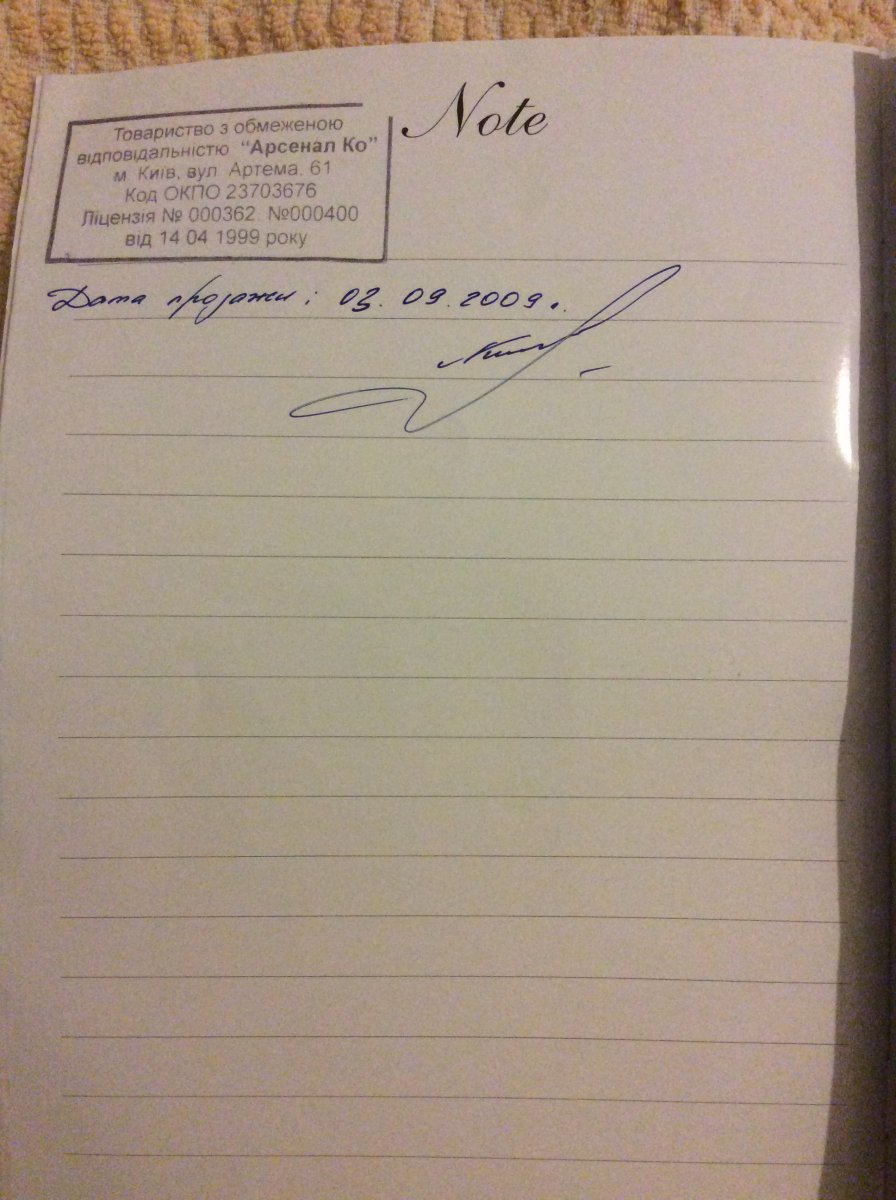 Note
Товариство з обмеженою
відповідальністю "Арсенал Ко"
м. Київ, вул. Артема. 61
Код ОКПО 23703676
Ліцензія № 000362. №000400
від 14 04 1999 року
Дата продажи: 03.09.2009г.